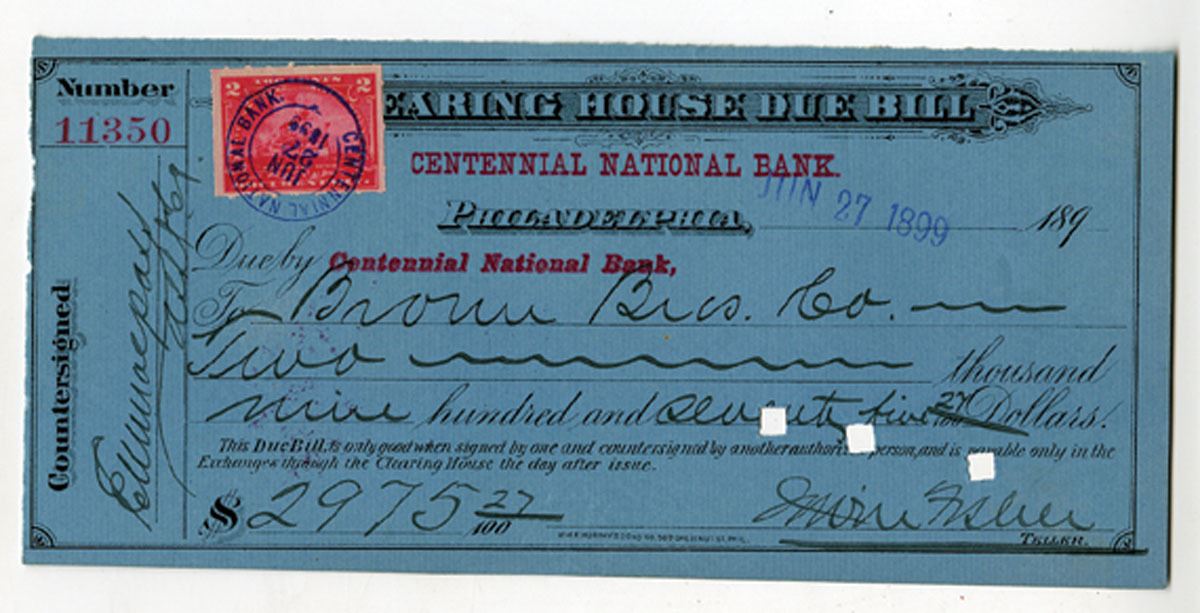 Number
11350
2 2
CENTENNIAL NATIONAL BANK
JUN
27
1899
EARING HOUSE DUE BILL
CENTENNIAL NATIONAL BANK.
JUN 27 1899
PHILADELPHIA, 189
Due by Centennial National Bank,
To Brown Bros. Co.
Two thousand
nine hundred and seventy five 27/100 Dollars.
This Due Bill, is only good when signed by one and countersigned by another authorized person, and is payable only in the
Exchanges through the Clearing House the day after issue.
$ 2975 27/100
TELLER.
Countersigned